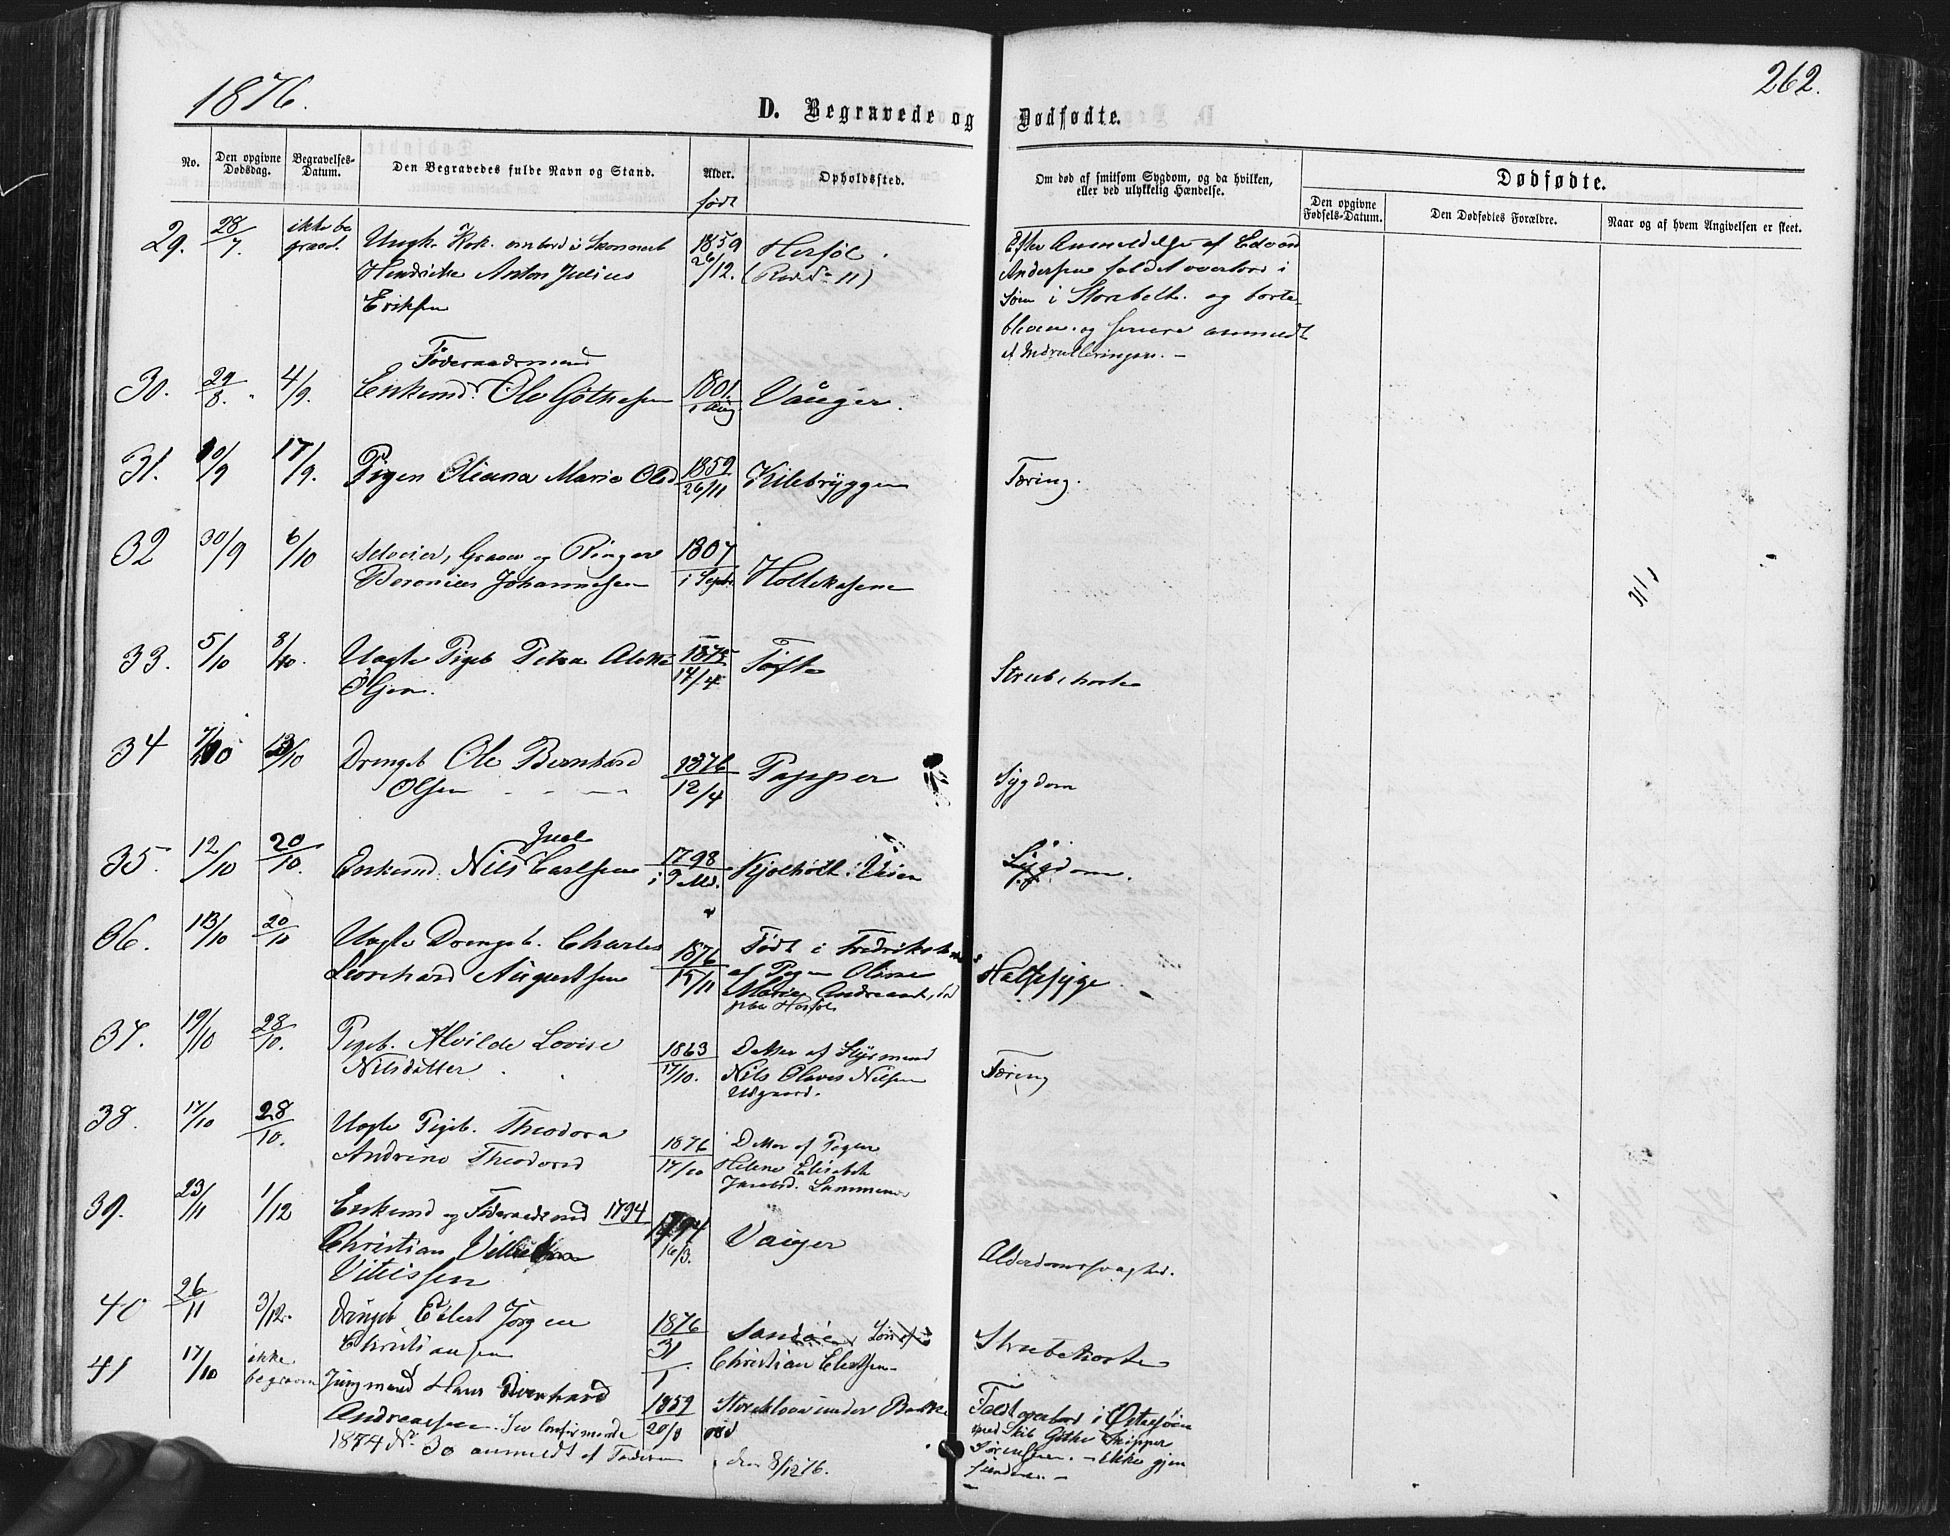 1876.
262.
D. Begravede og Dødfødte.
No.
Den opgivne Dødsdag.
Begravelses-Datum.
Den Begravedes fulde Navn og Stand.
Alder.
født
Opholdssted.
Om død af smitsom Sygdom, og da hvilken, eller ved ulykkelig Hændelse.
Dødfødte.
Den opgivne Fødsels-Datum.
Den Dødfødtes Forældre.
Naar og af hvem Angivelsen er skeet.
29. 28/7. ikke be Ungk. Kok ombord i 1859 Herføl. Efter Anmeldelse af Edvard
graved. Hendricke Anton Julius 26/12. (Rode No 11) Andersen faldet overbord i
Eriksen Søen i Storebelt. og borte-
bleven. og senere anmeldt
Føderaadsmand
30. 29/8. 4/9. Enkemd. Ole 1801. Vauger.
31. 10/9 17/9. Pigen Oliana Marie Olsd 1859 26/11 Kilebryggen Tæring.
32 30/9 6/10 Selveier, Graver og Ringer 1807
Johannessen i Septr Holtekasene
33. 5/10 8/10. Uægte Pigeb. Petra 1875 Tofte
Olsen. 14/4 Strubehoste
34 7/10 13/10 Drengeb. Ole Bernhard 1876 Papper
Olsen 12/4 Sygdom
Juel
35. 12/10 20/10. Enkemd. Nils Carlsen 1798 Kjølholt i Sygdom.
36. 13/10 20/10 Uægte Drengeb. Charles 1876 Født i Fredrikshald
Leonhard Augustsen 15/11 af Pigen Oline Halssyge.
Maria
fra Herføl
37. 19/10 28/10. Pigeb. Alvilde Lovise 1863 Datter af Styrmand
Nilsdatter 17/10. Nils Olaves Nilsen Tæring
Udgaard.
38. 17/10 28/10. Uægte Pigeb. Theodora 1876 Datter af Pigen
Andrine Theodorsd 17/10 Helene Elisabeth
Jacobsd.
39. 23/11 1/12 Enkemd og Føderaadsmd 1794 1794 Vauger
Christian 16/3. Alderdomssvaghed.
40 26/11 3/12. Drengeb. Edvert Jørgen 1876
Christiansen 31/1 Christian Strubehoste
41 17/10 ikke begraven Jungmand Hans Bernhard 1859 under Bakke Faldt overbord i Østersøen
Andreassen. See Confirmerede 20/8 med Skib Skipper
1874 No 30 anmeldt af Faderen Sørensen. – ikke gjen
den 8/12 76. funden. –